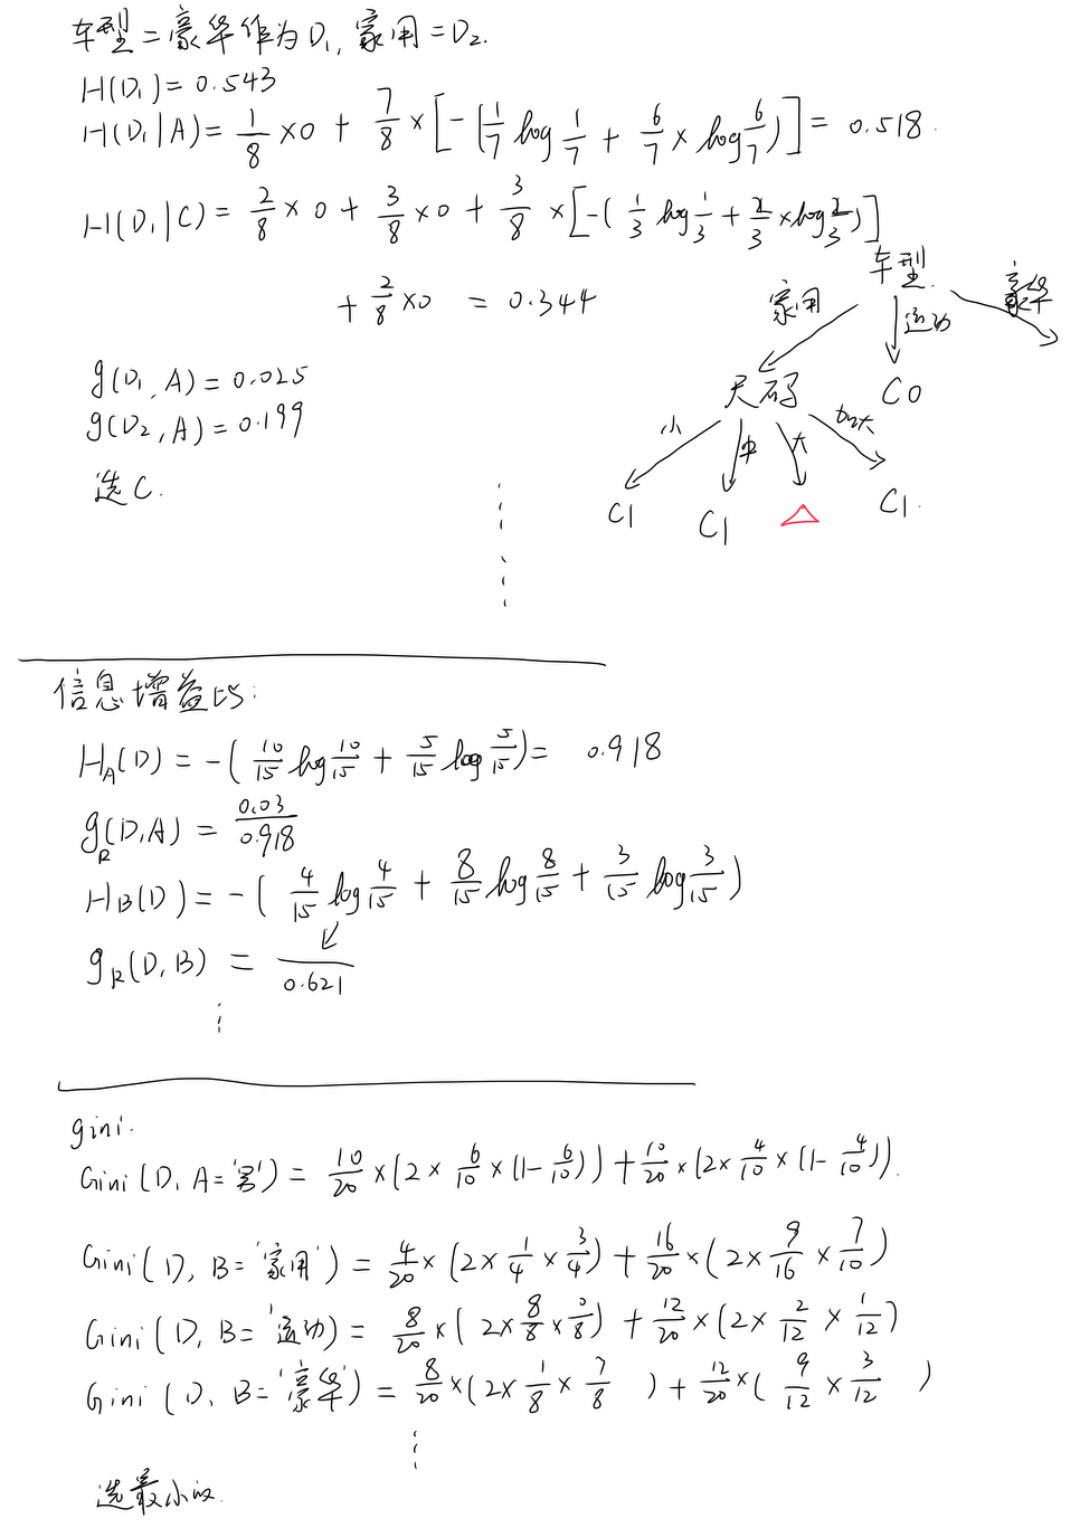 车型=豪华作为D₁, 家用=D₂.
H(D₁)=0.543
H(D₁|A)= 1/8 ×0 + 7/8 ×[-(1/7 log 1/7 + 6/7 × log 6/7)]= 0.518.
H(D₁|C)= 2/8 × 0 + 3/8 ×0 + 3/8 ×[-(1/3 log 1/3 + 2/3 ×log 2/3)]
+ 2/8 ×0 = 0.344
g(D₁, A)=0.025
g(D₂, A)=0.199
选C.
车型.
家用 运动 豪华
尺码 C0
小 中 大 加大
C1 C1 △ C1.
信息增益比:
H_A(D) = -( 10/15 log 10/15 + 5/15 log 5/15)= 0.918
g_R(D,A) = 0.03/0.918
H_B(D)= -( 4/15 log 4/15 + 8/15 log 8/15 + 3/15 log 3/15)
g_R(D,B) = ↙/0.621
gini.
Gini(D, A='男') = 10/20 ×(2× 6/10 ×(1- 6/10)) + 10/20 ×(2× 4/10 × (1- 4/10)).
Gini(D, B='家用') = 4/20 × (2× 1/4 × 3/4) + 16/20 ×(2× 9/16 × 7/10)
Gini(D, B='运动) = 8/20 ×( 2× 8/8 × 0/8) + 12/20 ×(2× 2/12 × 1/12)
Gini(D, B='豪华') = 8/20 ×(2× 1/8 × 7/8 ) + 12/20 ×( 9/12 × 3/12 )
选最小的.